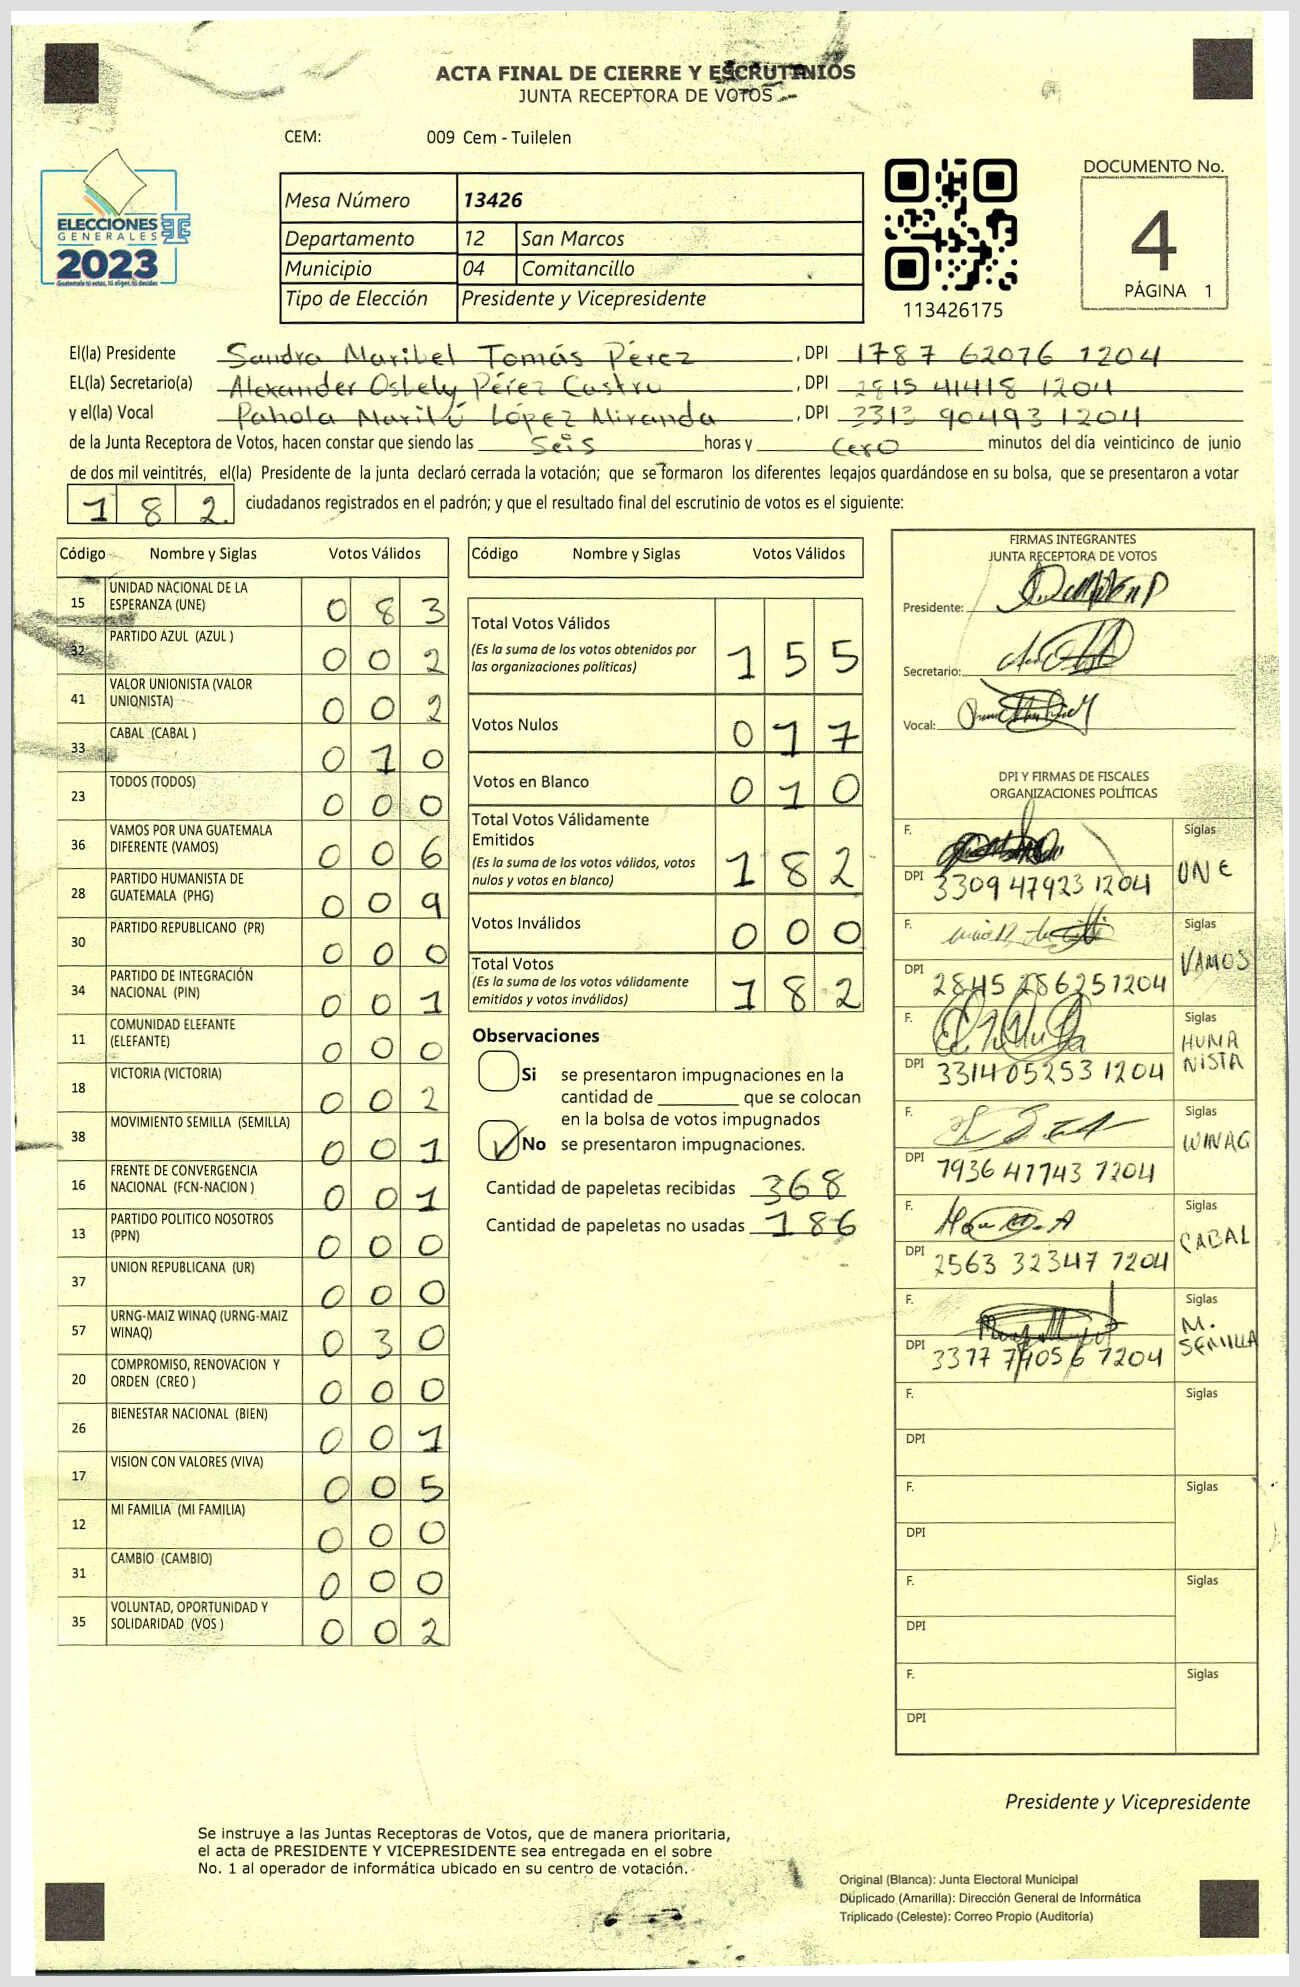 ACTA FINAL DE CIERRE Y ESCRUTINIOS
JUNTA RECEPTORA DE VOTOS
CEM: 009 Cem - Tuilelen
ELECCIONES
GENERALES
2023
Guatemala tú votas, tú eliges, tú decides
Mesa Número 13426
Departamento 12 San Marcos
Municipio 04 Comitancillo
Tipo de Elección Presidente y Vicepresidente
113426175
DOCUMENTO No.
4
PÁGINA 1
El(la) Presidente Sandra Maribel Tomás Pérez, DPI 1787 62076 1204
EL(la) Secretario(a) Alexander Osbely Pérez Castro, DPI 2815 41418 1204
y el(la) Vocal Pahola Marilú López Miranda, DPI 3313 90493 1204
de la Junta Receptora de Votos, hacen constar que siendo las seis horas y cero minutos del día veinticinco de junio
de dos mil veintitrés, el(la) Presidente de la junta declaró cerrada la votación; que se formaron los diferentes legajos guardándose en su bolsa, que se presentaron a votar
182 ciudadanos registrados en el padrón; y que el resultado final del escrutinio de votos es el siguiente:
Código Nombre y Siglas Votos Válidos
15 UNIDAD NACIONAL DE LA ESPERANZA (UNE) 083
32 PARTIDO AZUL (AZUL ) 002
41 VALOR UNIONISTA (VALOR UNIONISTA) 002
33 CABAL (CABAL ) 010
23 TODOS (TODOS) 000
36 VAMOS POR UNA GUATEMALA DIFERENTE (VAMOS) 006
28 PARTIDO HUMANISTA DE GUATEMALA (PHG) 009
30 PARTIDO REPUBLICANO (PR) 000
34 PARTIDO DE INTEGRACIÓN NACIONAL (PIN) 001
11 COMUNIDAD ELEFANTE (ELEFANTE) 000
18 VICTORIA (VICTORIA) 002
38 MOVIMIENTO SEMILLA (SEMILLA) 001
16 FRENTE DE CONVERGENCIA NACIONAL (FCN-NACION ) 001
13 PARTIDO POLITICO NOSOTROS (PPN) 000
37 UNION REPUBLICANA (UR) 000
57 URNG-MAIZ WINAQ (URNG-MAIZ WINAQ) 030
20 COMPROMISO, RENOVACION Y ORDEN (CREO ) 000
26 BIENESTAR NACIONAL (BIEN) 001
17 VISION CON VALORES (VIVA) 005
12 MI FAMILIA (MI FAMILIA) 000
31 CAMBIO (CAMBIO) 000
35 VOLUNTAD, OPORTUNIDAD Y SOLIDARIDAD (VOS ) 002
Código Nombre y Siglas Votos Válidos
Total Votos Válidos 155
(Es la suma de los votos obtenidos por
las organizaciones políticas)
Votos Nulos 017
Votos en Blanco 010
Total Votos Válidamente
Emitidos 182
(Es la suma de los votos válidos, votos
nulos y votos en blanco)
Votos Inválidos 000
Total Votos 182
(Es la suma de los votos válidamente
emitidos y votos inválidos)
Observaciones
Si se presentaron impugnaciones en la
cantidad de ________ que se colocan
en la bolsa de votos impugnados
No se presentaron impugnaciones.
Cantidad de papeletas recibidas 368
Cantidad de papeletas no usadas 186
FIRMAS INTEGRANTES
JUNTA RECEPTORA DE VOTOS
Presidente:
Secretario:
Vocal:
DPI Y FIRMAS DE FISCALES
ORGANIZACIONES POLÍTICAS
F. Siglas
DPI 3309 47923 1204 UNE
F. Siglas
DPI 2845 28625 1204 VAMOS
F. Siglas
DPI 3314 05253 1204 HUMANISTA
F. Siglas
DPI 7936 47743 7204 WINAG
F. Siglas
DPI 2563 32347 7204 CABAL
F. Siglas
DPI 3377 74056 7204 M. SEMILLA
F. Siglas
DPI
F. Siglas
DPI
F. Siglas
DPI
F. Siglas
DPI
Presidente y Vicepresidente
Se instruye a las Juntas Receptoras de Votos, que de manera prioritaria,
el acta de PRESIDENTE Y VICEPRESIDENTE sea entregada en el sobre
No. 1 al operador de informática ubicado en su centro de votación.
Original (Blanca): Junta Electoral Municipal
Duplicado (Amarilla): Dirección General de Informática
Triplicado (Celeste): Correo Propio (Auditoría)